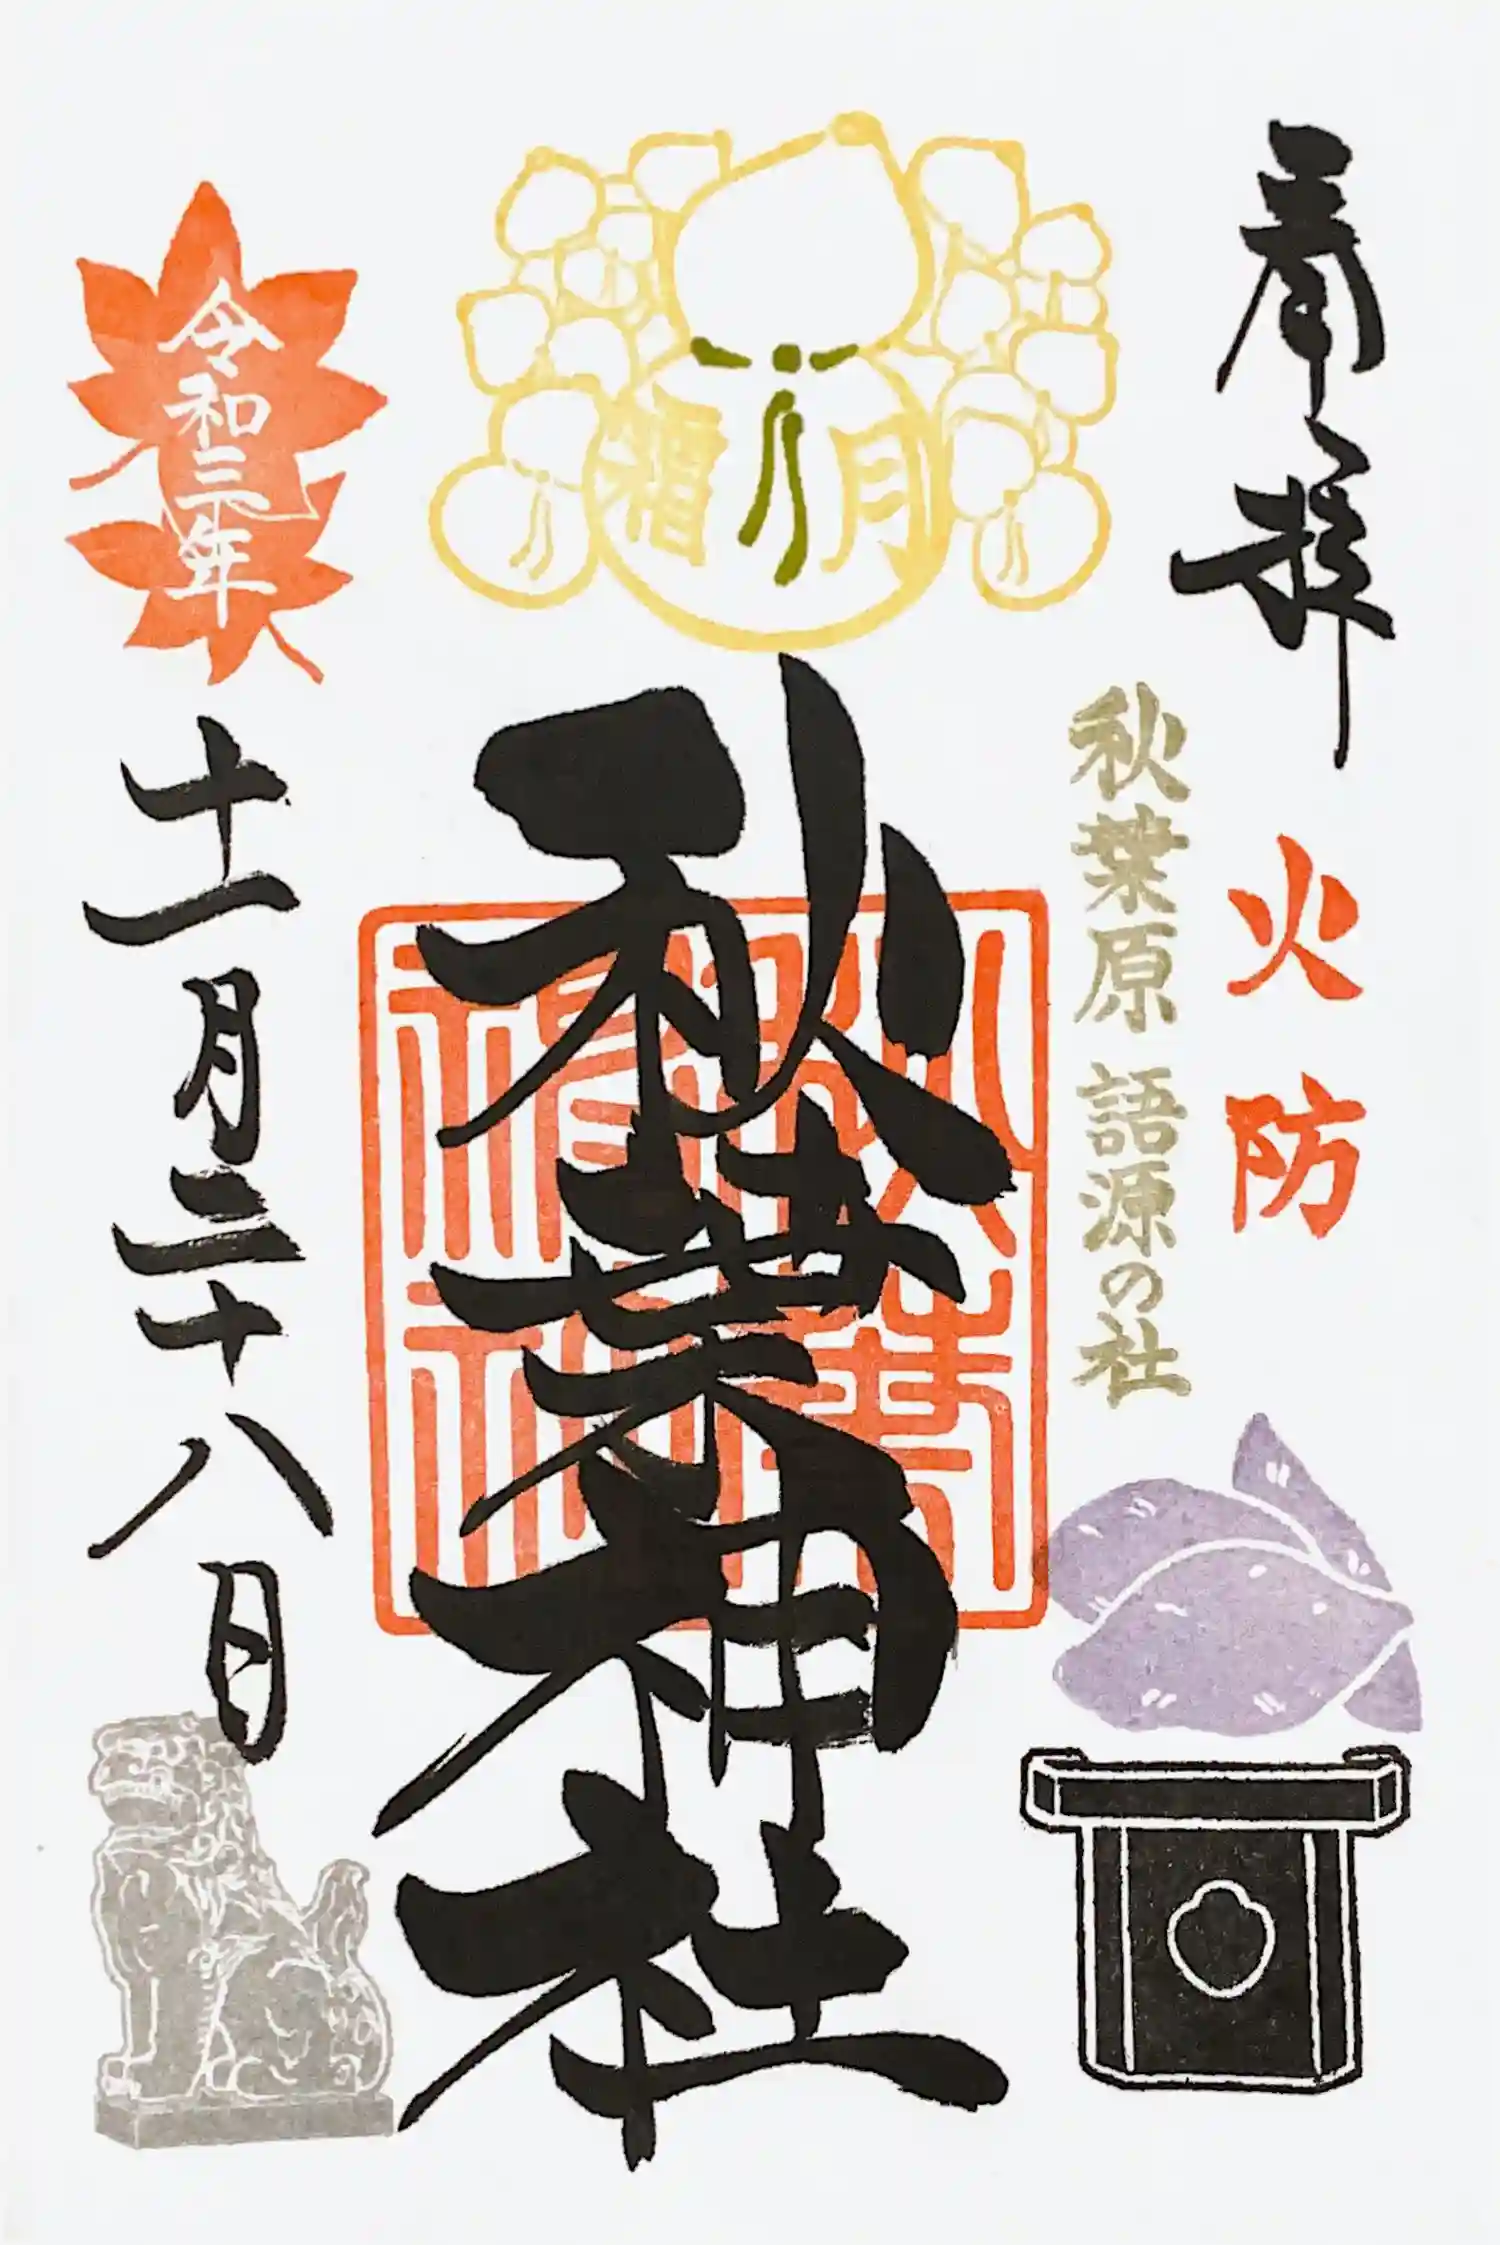 奉拝
火防
秋葉原 語源の社
霜月
秋葉神社
令和三年
十一月二十八日